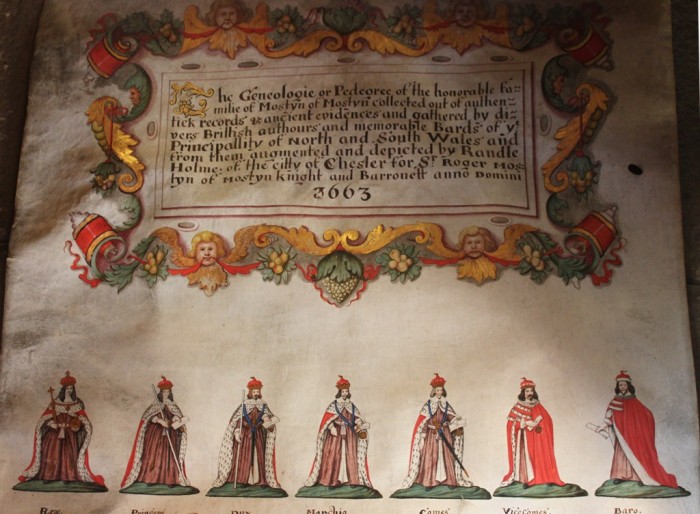 The Geneologie or Pedegree of the honorable fa=
milie of Mostyn of Mostyn collected out of authen=
tick records & ancient evidences and gathered by di=
vers Brittish authours and memorable Bards of yᵉ
Principallity of North and South Wales and
from them augmented and depicted by Randle
Holme: of the citty of Chester for Sʳ Roger Mos=
tyn of Mostyn knight and Barronett anno Domini
1663
Rex. Princeps Dux Marchio Comes. Vicecomes. Baro.